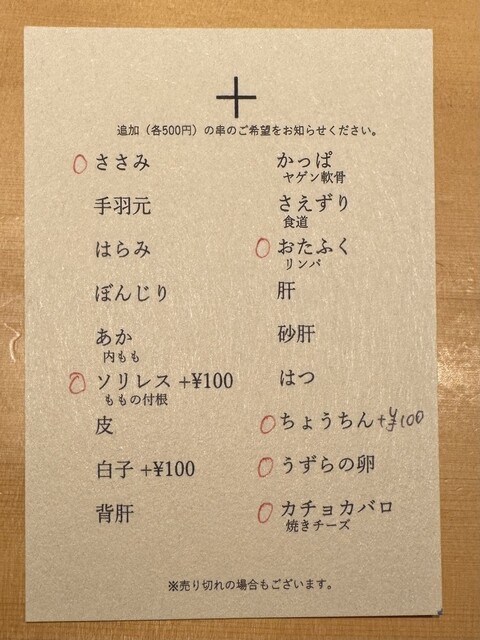 十
追加（各500円）の串のご希望をお知らせください。
ささみ
手羽元
はらみ
ぼんじり
あか
内もも
ソリレス +¥100
ももの付根
皮
白子 +¥100
背肝
かっぱ
ヤゲン軟骨
さえずり
食道
おたふく
リンパ
肝
砂肝
はつ
ちょうちん+¥100
うずらの卵
カチョカバロ
焼きチーズ
※売り切れの場合もございます。